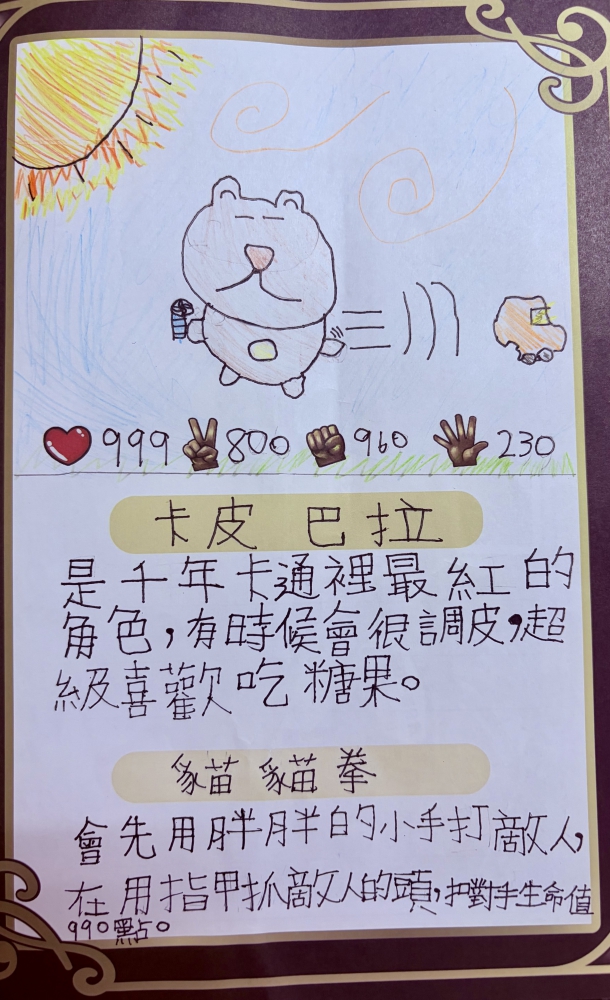 999 800 960 230
卡皮巴拉
是千年卡通裡最紅的
角色,有時候會很調皮,超
級喜歡吃糖果。
貓貓拳
會先用胖胖的小手打敵人,
在用指甲抓敵人的頭,把對手生命值
990點。